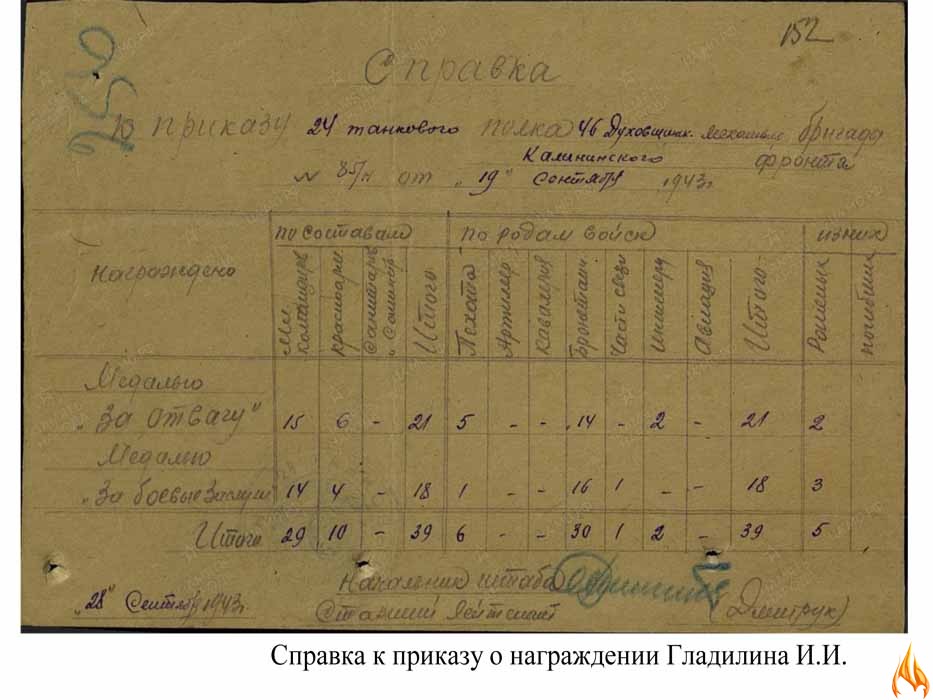 152
Справка
к приказу 24 танкового полка 46 Духовщинк. механизов. бригада
Калининского фронта
№ 85/н от "19" Сентября 1943г
Награждено
по составам
по родам войск
из них
Мл. командиры
красноарм
Санитары
Итого
Пехота
Артиллер
Кавалерия
Бронетанк.
Части связи
Инженерн
Авиация
Итого
Раненых
погибших
Медалью
"За отвагу" 15 6 - 21 5 - - 14 - 2 - 21 2
Медалью
"За боевые Заслуги" 14 4 - 18 1 - - 16 1 - - 18 3
Итого 29 10 - 39 6 - - 30 1 2 - 39 5
Начальник штаба
"28" Сентября 1943г. Старший лейтенант (Дмитрук)
Справка к приказу о награждении Гладилина И.И.